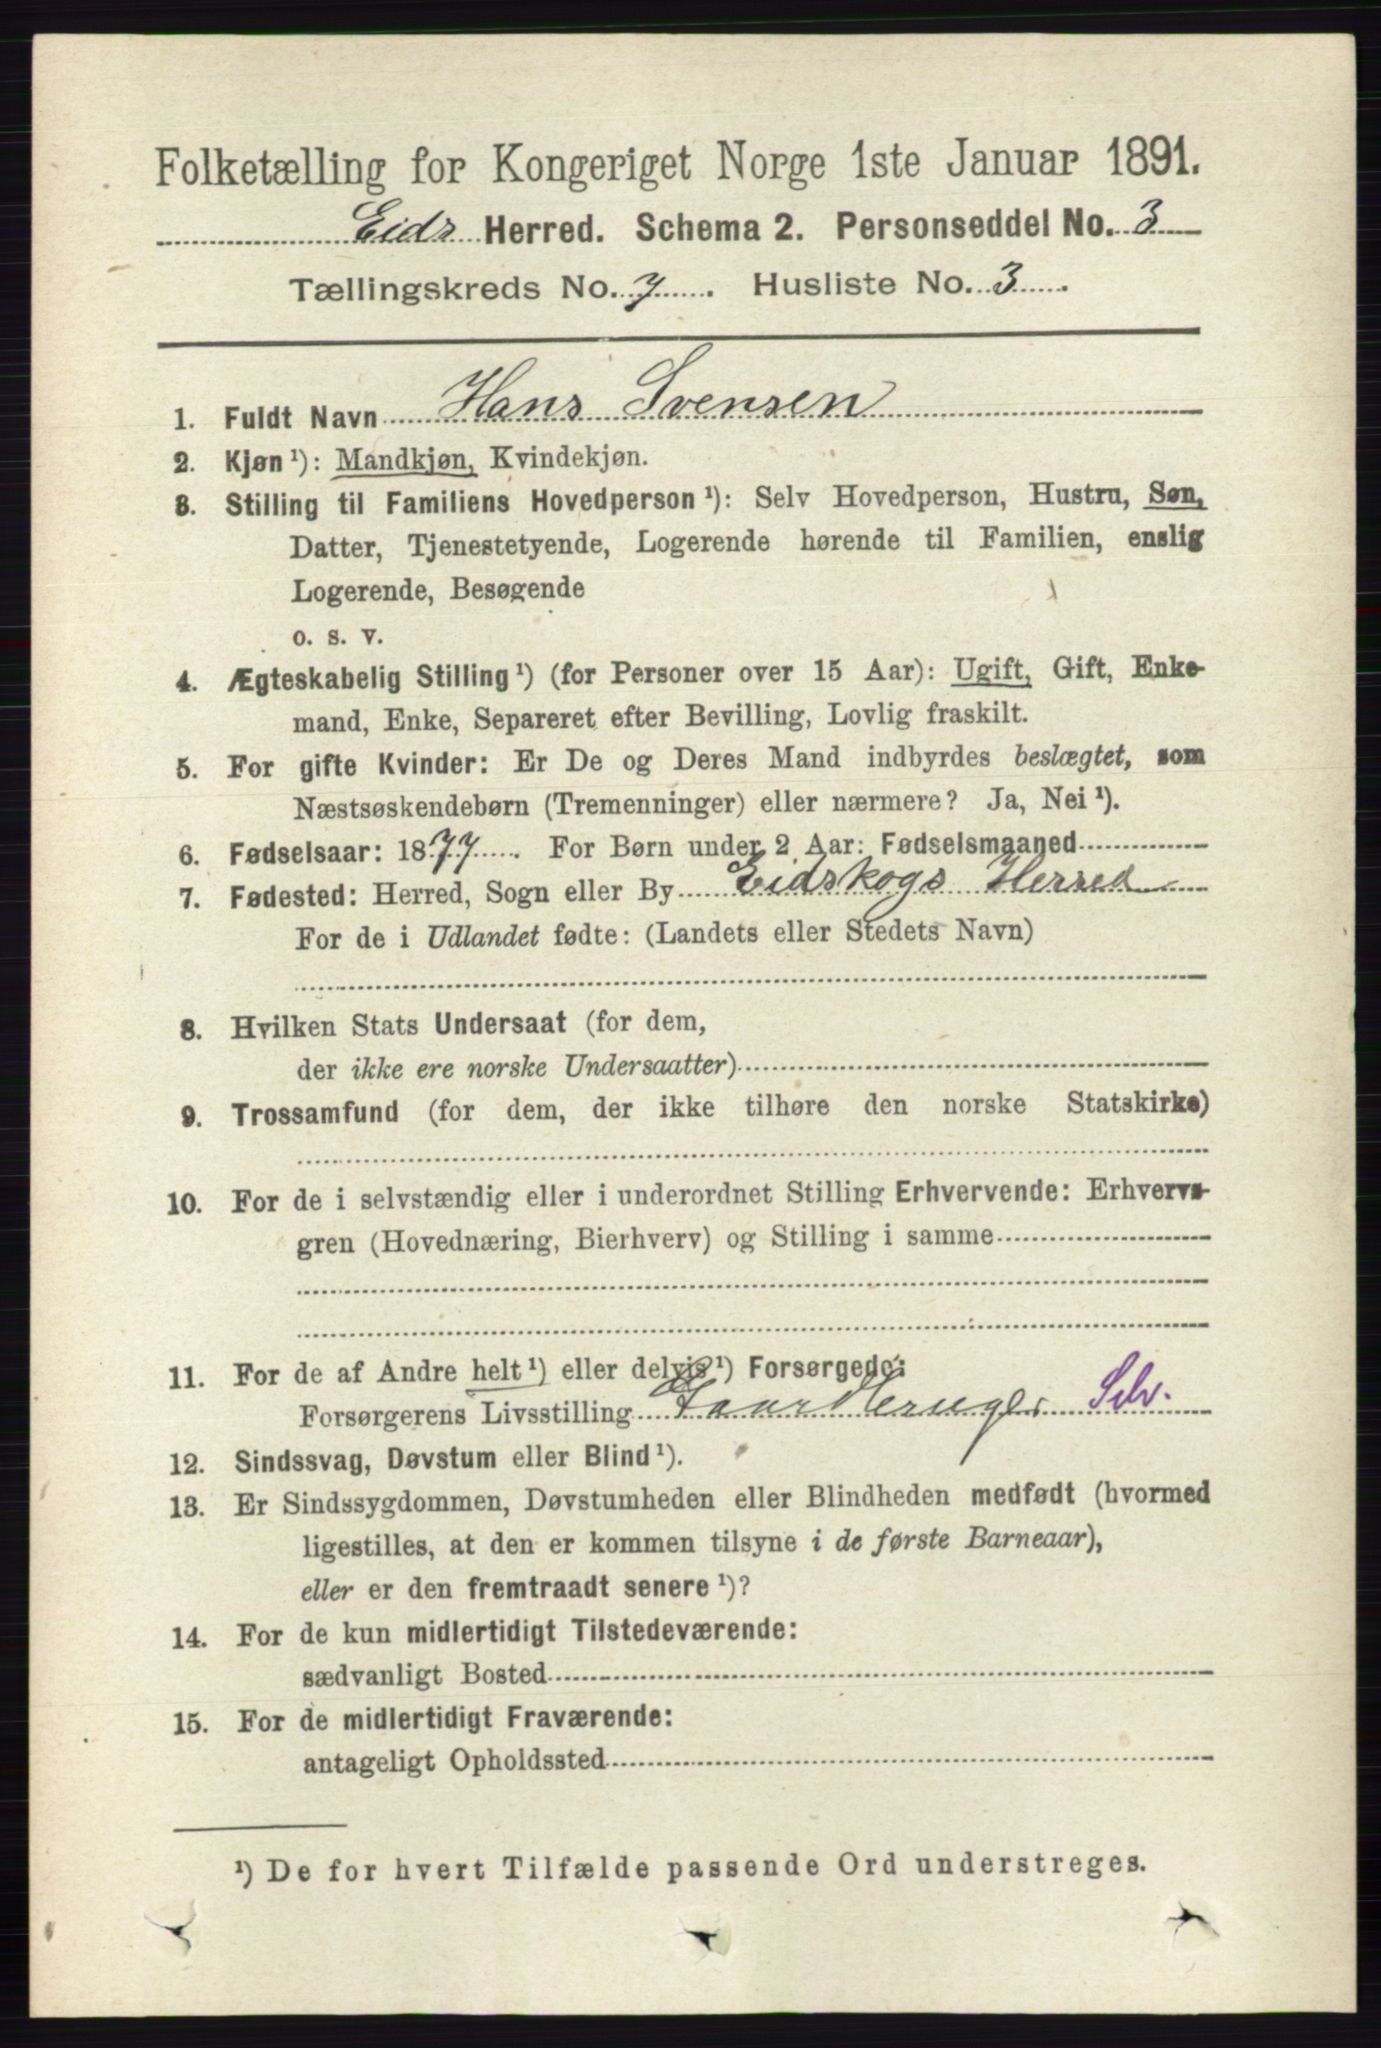 Folketælling for Kongeriget Norge 1ste Januar 1891.
Eids Herred. Schema 2. Personseddel No. 3
Tællingskreds No. 7. Husliste No. 3.
1. Fuldt Navn Hans Svensen
2. Kjøn ¹): Mandkjøn, Kvindekjøn.
3. Stilling til Familiens Hovedperson ¹): Selv Hovedperson, Hustru, Søn,
Datter, Tjenestetyende, Logerende hørende til Familien, enslig
Logerende, Besøgende
o. s. v.
4. Ægteskabelig Stilling ¹) (for Personer over 15 Aar): Ugift, Gift, Enke-
mand, Enke, Separeret efter Bevilling, Lovlig fraskilt.
5. For gifte Kvinder: Er De og Deres Mand indbyrdes beslægtet, som
Næstsøskendebørn (Tremenninger) eller nærmere? Ja, Nei ¹).
6. Fødselsaar: 1877. For Børn under 2 Aar: Fødselsmaaned
7. Fødested: Herred, Sogn eller By Eidskogs Herred
For de i Udlandet fødte: (Landets eller Stedets Navn)
8. Hvilken Stats Undersaat (for dem,
der ikke ere norske Undersaatter)
9. Trossamfund (for dem, der ikke tilhøre den norske Statskirke)
10. For de i selvstændig eller i underordnet Stilling Erhvervende: Erhvervs-
gren (Hovednæring, Bierhverv) og Stilling i samme
11. For de af Andre helt ¹) eller delvis ¹) Forsørgede:
Forsørgerens Livsstilling Gaardbruger Selv.
12. Sindssvag, Døvstum eller Blind ¹).
13. Er Sindssygdommen, Døvstumheden eller Blindheden medfødt (hvormed
ligestilles, at den er kommen tilsyne i de første Barneaar),
eller er den fremtraadt senere ¹)?
14. For de kun midlertidigt Tilstedeværende:
sædvanligt Bosted
15. For de midlertidigt Fraværende:
antageligt Opholdssted
¹) De for hvert Tilfælde passende Ord understreges.